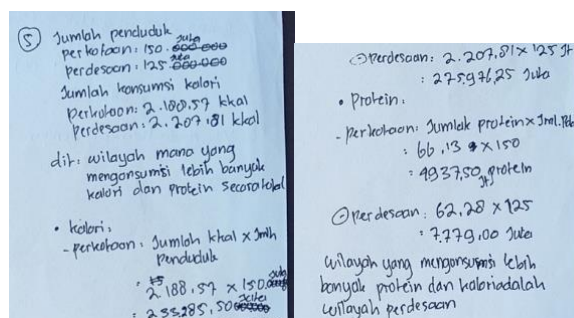 5 Jumlah penduduk
perkotaan: 150. juta
perdesaan: 125. juta
Jumlah konsumsi kalori
Perkotaan: 2.188,57 kkal
perdesaan: 2.207,81 kkal
dit: wilayah mana yang
mengonsumsi lebih banyak
kalori dan protein secara total
• kalori:
- perkotaan: Jumlah kkal x Jmlh
Penduduk
: 2188,57 x 150. juta
: 233285,50
- perdesaan: 2.207,81 x 125 Jt
: 275.976,25 Juta
• Protein:
- perkotaan: Jumlah protein x Jml.
: 66,13 x 150
: 4937,50 Jt protein
- perdesaan: 62,28 x 125
: 7.779,00 Juta
wilayah yang mengonsumsi lebih
banyak protein dan kalori adalah
wilayah perdesaan